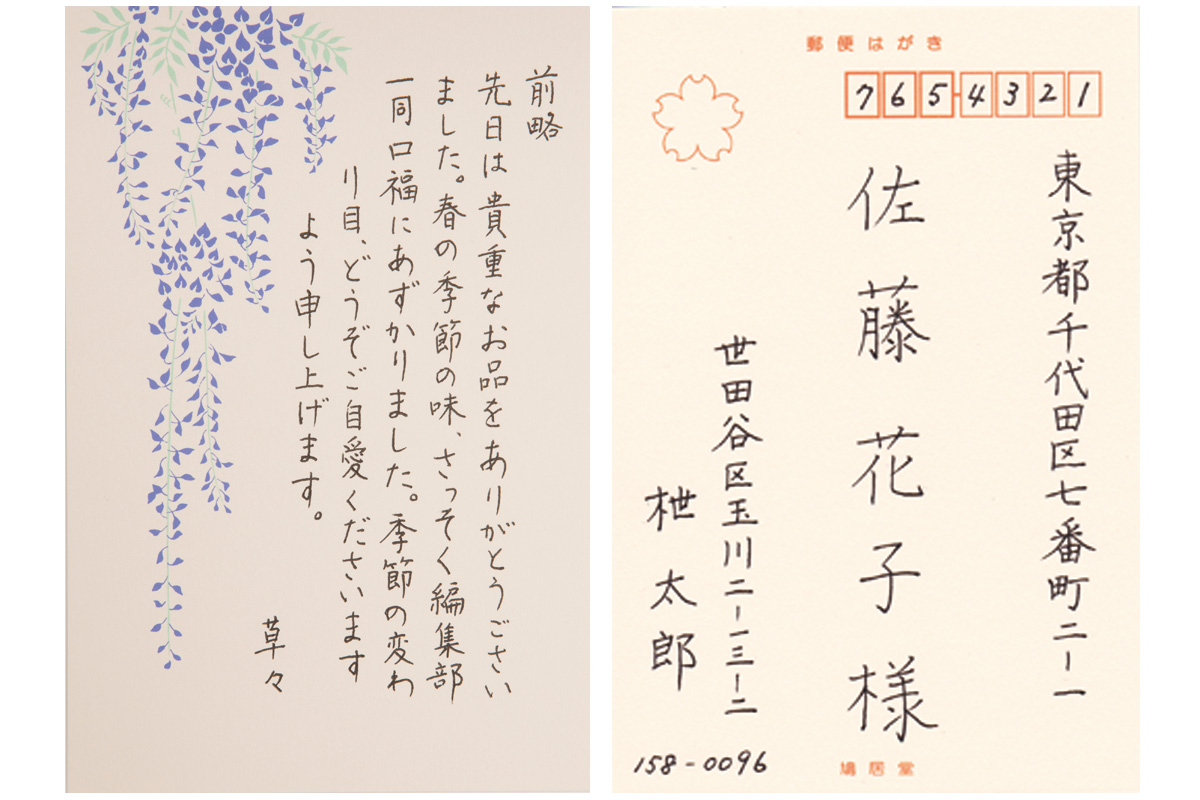 前略
先日は貴重なお品をありがとうござい
ました。春の季節の味、さっそく編集部
一同口福にあずかりました。季節の変わ
り目、どうぞご自愛くださいます
よう申し上げます。
草々
郵便はがき
765-4321
東京都千代田区七番町二-一
佐藤花子様
世田谷区玉川二-一三-二
枻太郎
158-0096
鳩居堂